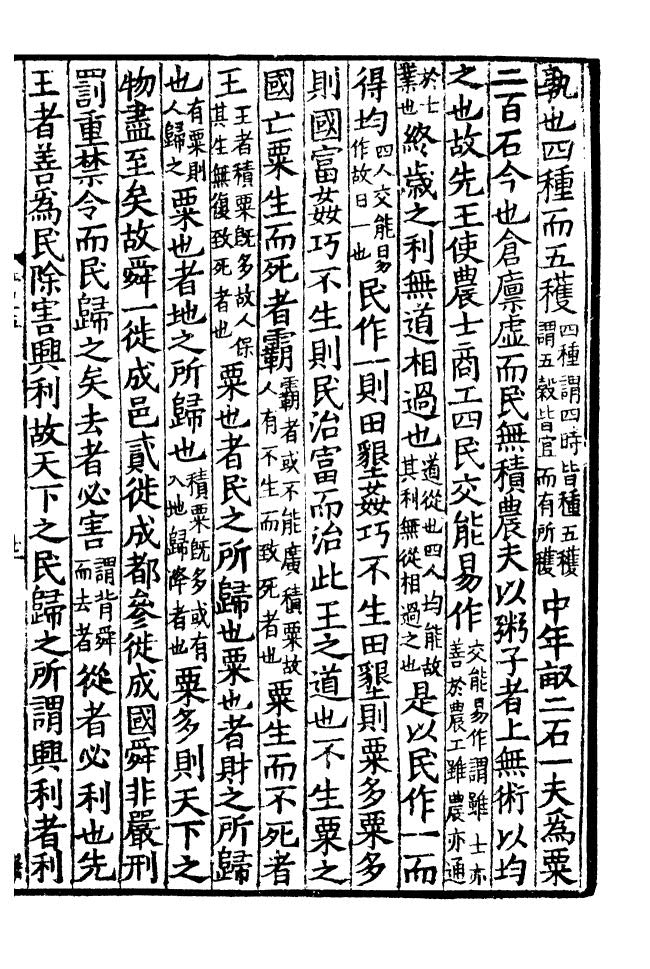 孰也四種而五穫四種謂四時皆種五穫謂五穀皆宜而有所穫中年畝二石一夫爲粟
二百石今也倉廩虛而民無積農夫以粥子者上無術以均
之也故先王使農士商工四民交能易作交能易作謂雖士亦善於農工雖農亦通
於士業也終歲之利無道相過也道從也四人均能故其利無從相過之也是以民作一而
得均四人交能易作故曰一也民作一則田墾姦巧不生田墾則粟多粟多
則國富姦巧不生則民治富而治此王之道也不生粟之
國亡粟生而死者霸霸者或不能廣積粟故人有不生而致死者也粟生而不死者
王王者積粟旣多故人保其生無復致死者也粟也者民之所歸也粟也者財之所歸
也有粟則人歸之粟也者地之所歸也積粟旣多或有入地歸降者也粟多則天下之
物盡至矣故舜一徙成邑貳徙成都參徙成國舜非嚴刑
罰重禁令而民歸之矣去者必害謂背舜而去者從者必利也先
王者善爲民除害興利故天下之民歸之所謂興利者利